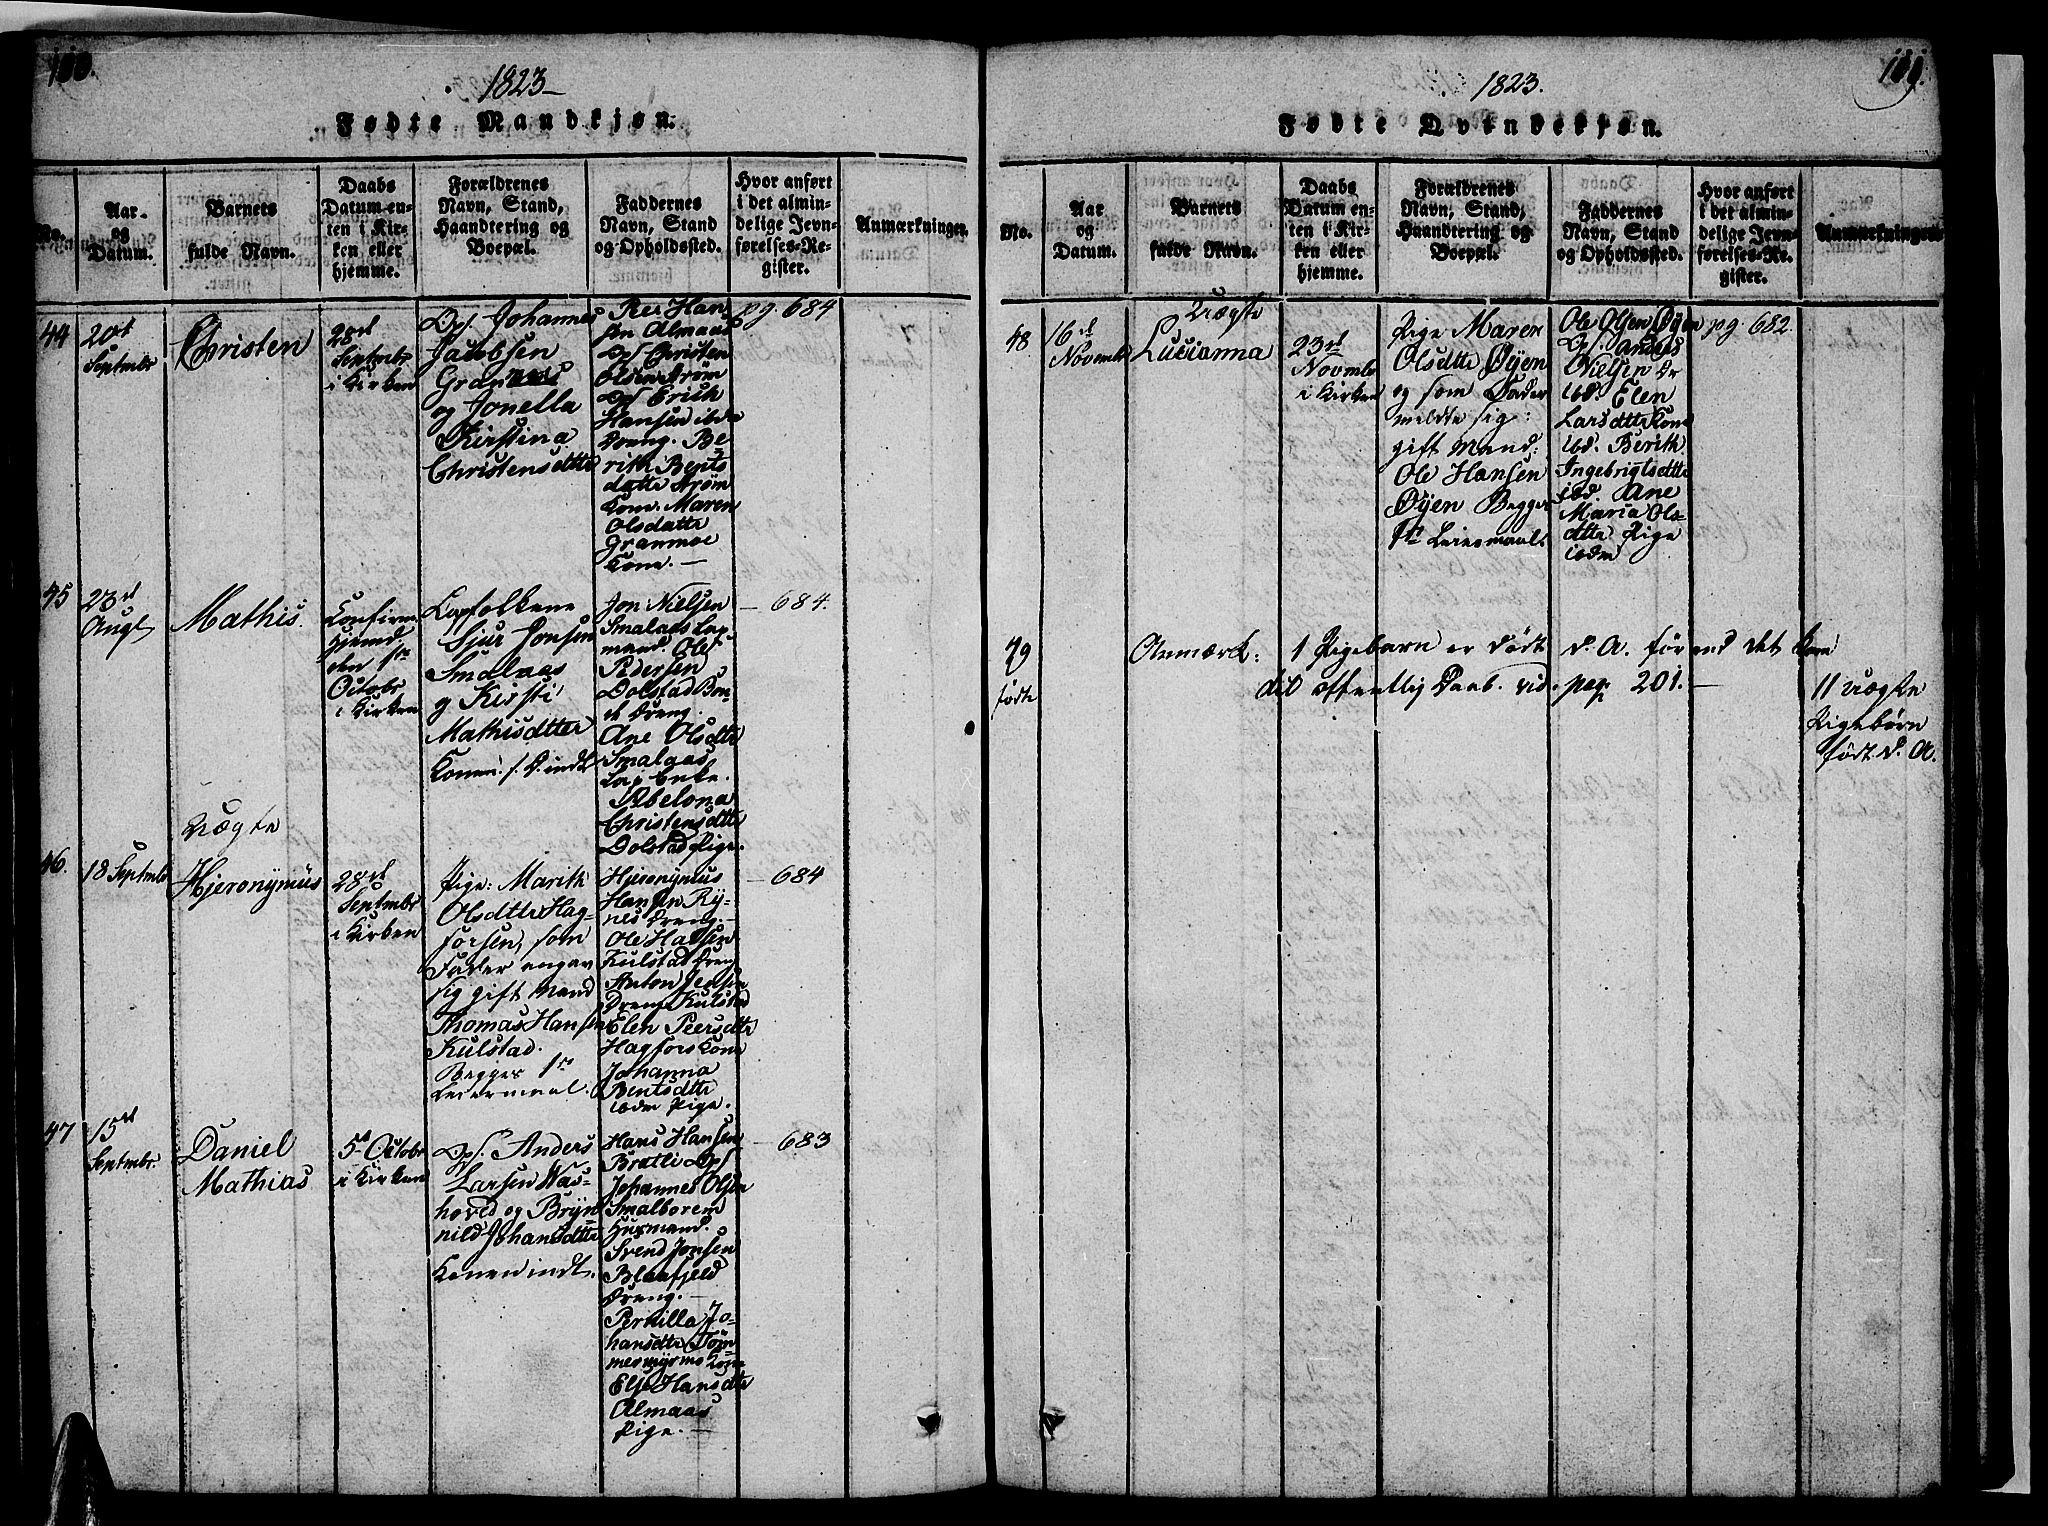 100.
1823
Fødte Mandkjøn.
No.
Aar-
og
Datum.
Barnets
fulde Navn.
Daabs
Datum en-
ten i Kir-
ken eller
hjemme.
Forældrenes
Navn, Stand,
Haandtering og
Boepæl.
Faddernes
Navn, Stand
og Opholdssted.
Hvor anført
i det almin-
delige Jevn-
førelses-Re-
gister.
Anmærkninger.
44
20de
Septmbr
Christen
28de
Septmbr
i Kirken
Johannes
Jacobsen
og Jonella
Kirstina
Christensdtte
Peer Han
sen Almaas
Christen
Olsen Strøm
Erich
Hansen
Dreng. Be
rith Bents
datte Strøm
Kone. Maren
Olsdatte
Granmoe
Kone.
pg. 684
45
23de
Augt
Mathis.
Confirm
hjemd
den 1ste
Octobr
i Kirken
Lapfolkene
Sjur Jonsen
Smalaas
og Kirsti
Mathisdtter
Konen
Jon Nielsen
Smalaas Lap
mand. Ole
Pedersen
Dolstad
Dreng.
Ane Olsdtte
Smalaas
Lap Enke.
Abelona
Christensdtte
Dolstad Pige.
684.
46.
18 Septmbr
Uægte
Hjeronymus
28de
Septmbr
i Kirken
Pige: Marith
Olsdtte Hag-
forsen, som
Fader angav
sig gift Mand
Thomas Hansen
Kulstad.
Begges 1ste
Leiermaal.
Hjeronymus
Hansen Ry-
nes Dreng.
Ole Hansen
Kulstad Dreng
Anton Jensen
Dreng Kulstad
Elen Peersdtte
Hagfors Kone
Johanna
Bentsdtte
ibdm Pige.
684
47
15de
Septmbr.
Daniel
Mathias
5te Octobr
i Kirken
Anders
Larsen Nas-
hoved og Bryn
nild Johansdtte
Konen indl.
Hans Hansen
Bratli
Johannes Olsen
Smalborem
Huusmand.
Svend Jonsen
Blaafjeld
Dreng.
Pernilla Jo-
hansdtte Tøm
mermyrmo Kone
Else Hansdtte
Almaas
Pige.
683
101.
1823.
Fødte Qvindekjøn.
No.
Aar
og
Datum.
Barnets
fulde Navn.
Daabs
Datum en-
ten i Kir-
ken eller
hjemme.
Forældrenes
Navn, Stand,
Haandtering og
Boepæl.
Faddernes
Navn, Stand
og Opholdssted.
Hvor anført
i det almin-
delige Jevn-
førelses-Re-
gister.
Anmærkninger.
48
16de
Novembr
Uægte
Lucianna
23de
Novmbr
i Kirken
Pige Maren
Olsdtte Øyen
og som Fader
meldte sig:
gift Mand:
Ole Hansen
Øyen Begges
1ste Leiermaal
Ole Olsen Øyen
Anders
Nielsen
ibd. Elen
Larsdtte Kone
ibd. Berith
Ingebrigtsdtte
ibd. Ane
Maria Ols-
dtte Pige
ibdm
pg. 682.
49
fødte
Anmærk: 1 Pigebarn er dødt d. A. førend det kom
til offentlig Daab. vid. pag 201.
11 uægte
Pigebørn
født d. A.